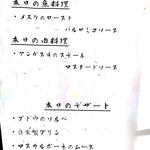 本日の魚料理
・メヌケのロースト
バルサミコソース
本日の肉料理
・アンガス牛のステーキ
マスタードソース
本日のデザート
・ブドウのソルベ
・自家製プリン
・マスカルポーネのムース